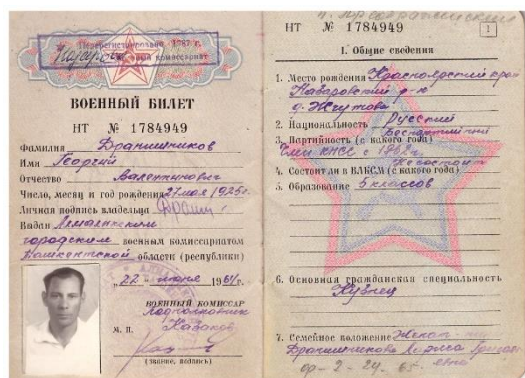 Перерегистрировано 1987 г.
военный комиссариат
ВОЕННЫЙ БИЛЕТ
НТ № 1784949
Фамилия Драншников
Имя Георгий
Отчество Валентинович
Число, месяц и год рождения 27 мая 1925г.
Личная подпись владельца
Выдан Алмалыкским
городским военным комиссариатом
Ташкентской области (республики)
„22" июня 1964г.
ВОЕННЫЙ КОМИССАР
подполковник
М. П.
(звание, подпись)
НТ № 1784949
1
1. Общие сведения
1. Место рождения Красноярский край
Назаровский р-н
д. Жгутово
2. Национальность Русский
3. Партийность (с какого года) Беспартийный
Член КПСС с
4. Состоял ли в ВЛКСМ (с какого года) Не состоит
5. Образование 5 классов
6. Основная гражданская специальность
Кузнец
7. Семейное положение Женат